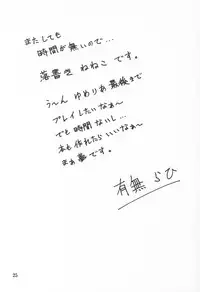 またしても
時間が無いので…
落書き ねねこ です。
う〜ん ゆめりあ最後まで
プレイしたいなぁ〜
でも時間ないし…
本も作れたらいいなぁ〜
まぁ夢です。
有無らひ
25